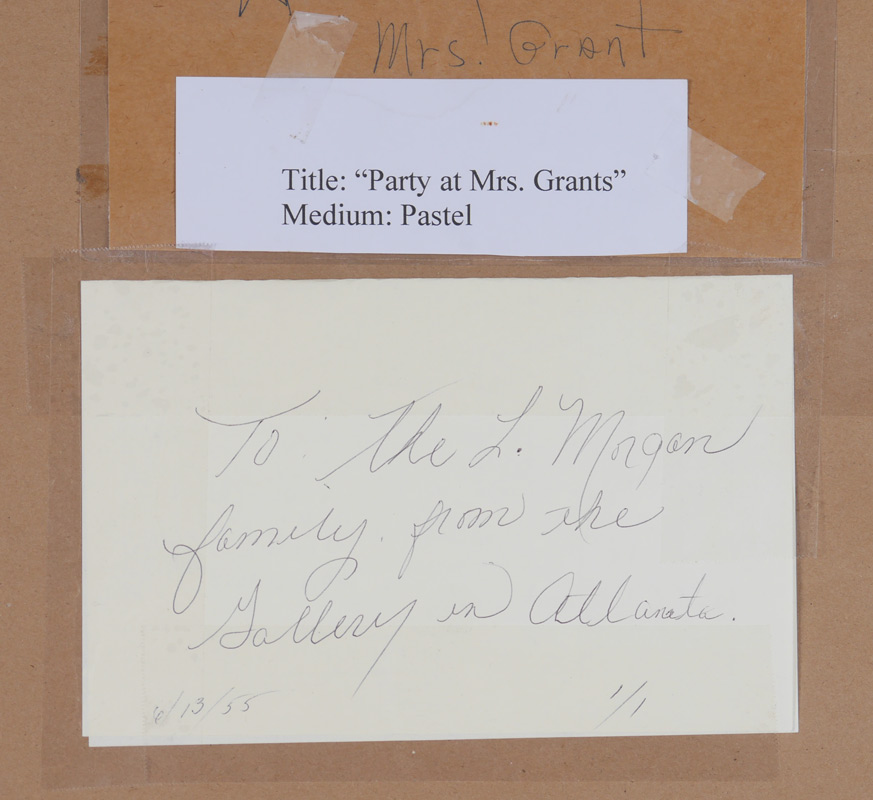 Mrs. Grant
Title: “Party at Mrs. Grants”
Medium: Pastel
To: The L. Morgan
family. from the
Gallery in Atllanata.
6/13/55 1/1